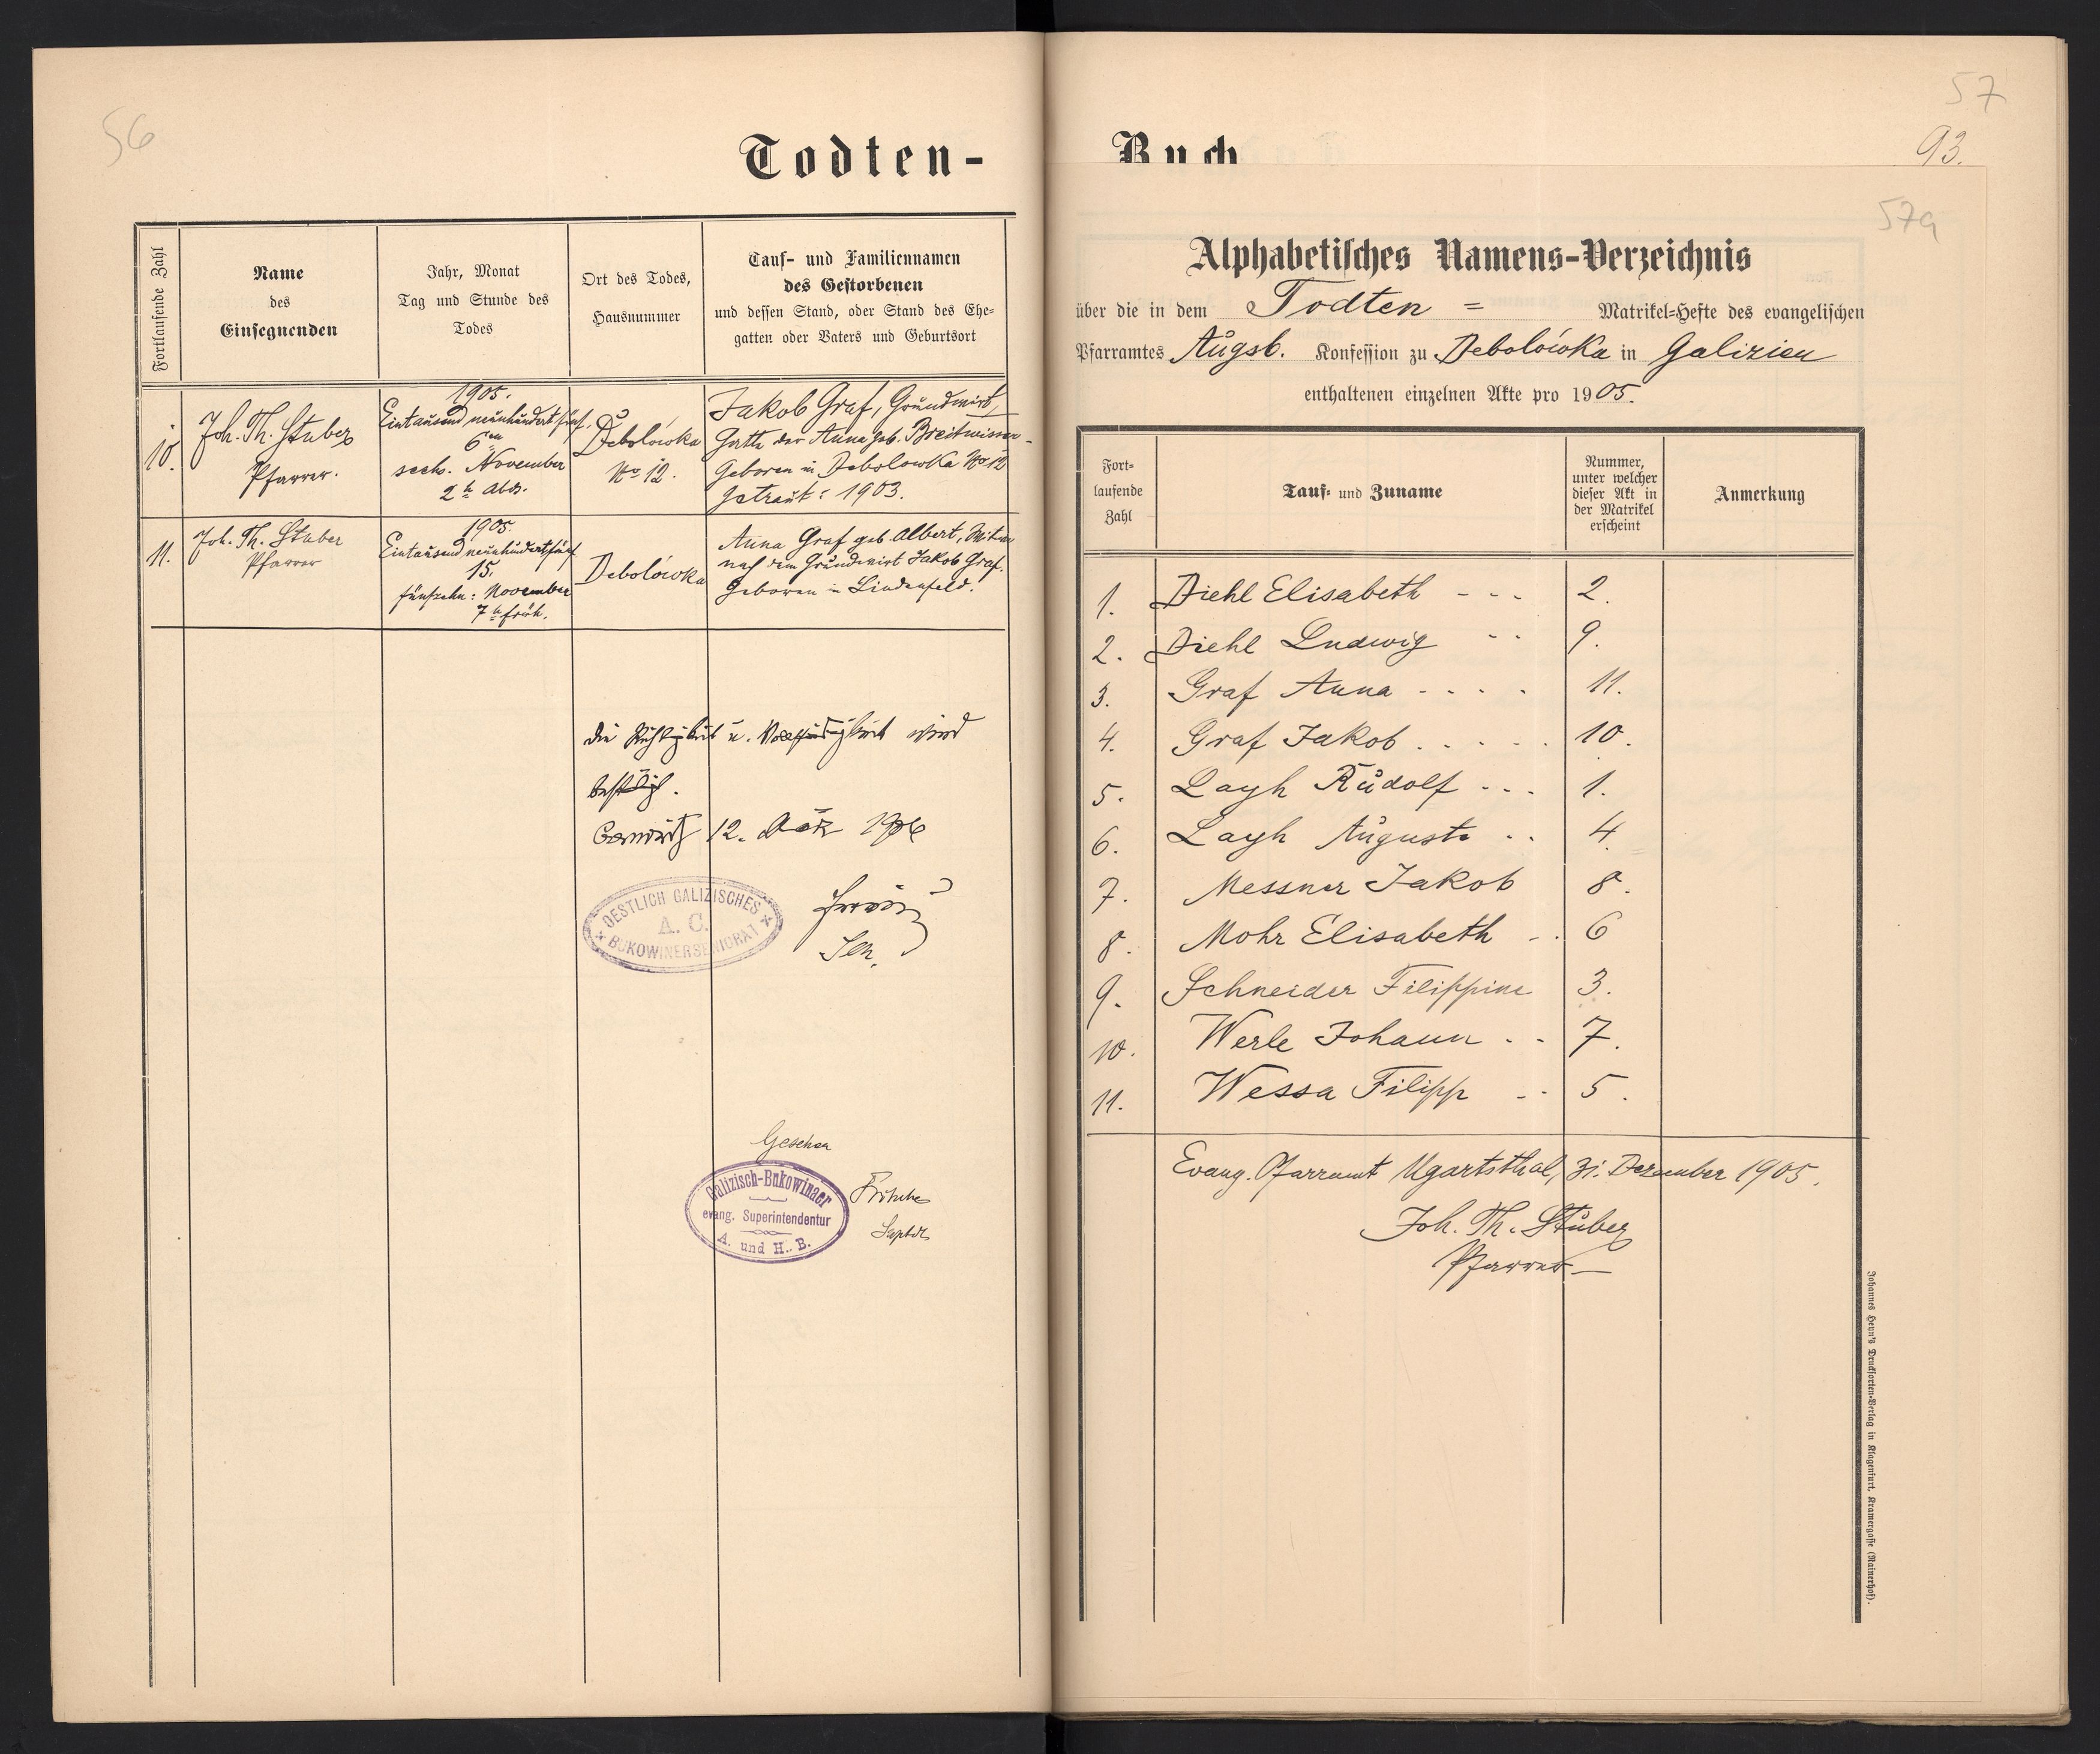 56
Todten-
Fortlaufende Zahl
Name
des
Einsegnenden
Jahr, Monat
Tag und Stunde des
Todes
Ort des Todes,
Hausnummer
Tauf- und Familiennamen
des Gestorbenen
und dessen Stand, oder Stand des Ehe-
gatten oder Vaters und Geburtsort
10.
Joh. Th. Stuber
Pfarrer.
1905.
Eintausend neunhundert fünf.
6ten
sechs. November
2 h Abds.
Debolówka
No 12.
Jakob Graf, Grundwirt,
Gatte der Anna geb. Breitwieser-
Geboren in Debolowka No 12
Getraut: 1903.
11.
Joh. Th. Stuber
Pfarrer
1905.
Eintausend neunhundertfünf
15.
fünfzehn: November
7 h früh.
Debolówka
Anna Graf geb. Albert, Witwe
nach dem Grundwirt Jakob Graf.
Geboren in Lindenfeld.
Die Richtigkeit u. Vollständigkeit wird
bestätigt.
12. März 1906
OESTLICH GALIZISCHES
A. C.
BUKOWINERSENIORAT
Sen.
Gesehen
Galizisch-Bukowinaer
evang. Superintendentur
A. und H. B.
Fritsche
Suptdt.
57
Buch
93.
57a
Alphabetisches Namens-Verzeichnis
über die in dem Todten = Matrikel-Hefte des evangelischen
Pfarramtes Augsb. Konfession zu Debolówka in Galizien
enthaltenen einzelnen Akte pro 1905.
Fort-
laufende
Zahl
Tauf- und Zuname
Nummer,
unter welcher
dieser Akt in
der Matrikel
erscheint
Anmerkung
1. Diehl Elisabeth - - - 2.
2. Diehl Ludwig - - 9.
3. Graf Anna - - - - 11.
4. Graf Jakob . . . . . 10.
5. Layh Rudolf - - - 1.
6. Layh Auguste . . 4.
7. Messner Jakob 8.
8. Mohr Elisabeth - . 6
9. Schneider Filippine 3.
10. Werle Johann . - 7.
11. Wessa Filipp - . 5.
Evang. Pfarramt Ugartsthal, 31. Dezember 1905.
Joh. Th. Stuber
Pfarrer
Johannes Heyn's Drucksorten-Verlag in Klagenfurt, Kramergasse (Rainerhof).